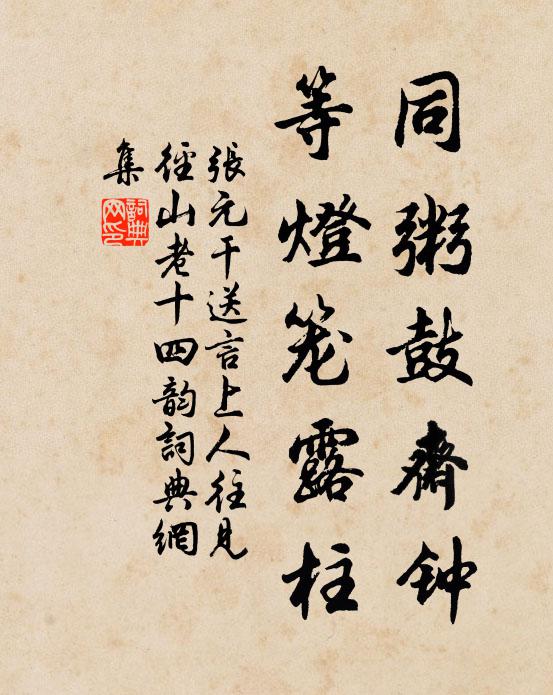 同粥鼓齋钟
等燈笼露柱
張元干送言上人往見
徑山老十四韵詞典網
集
詞典网印